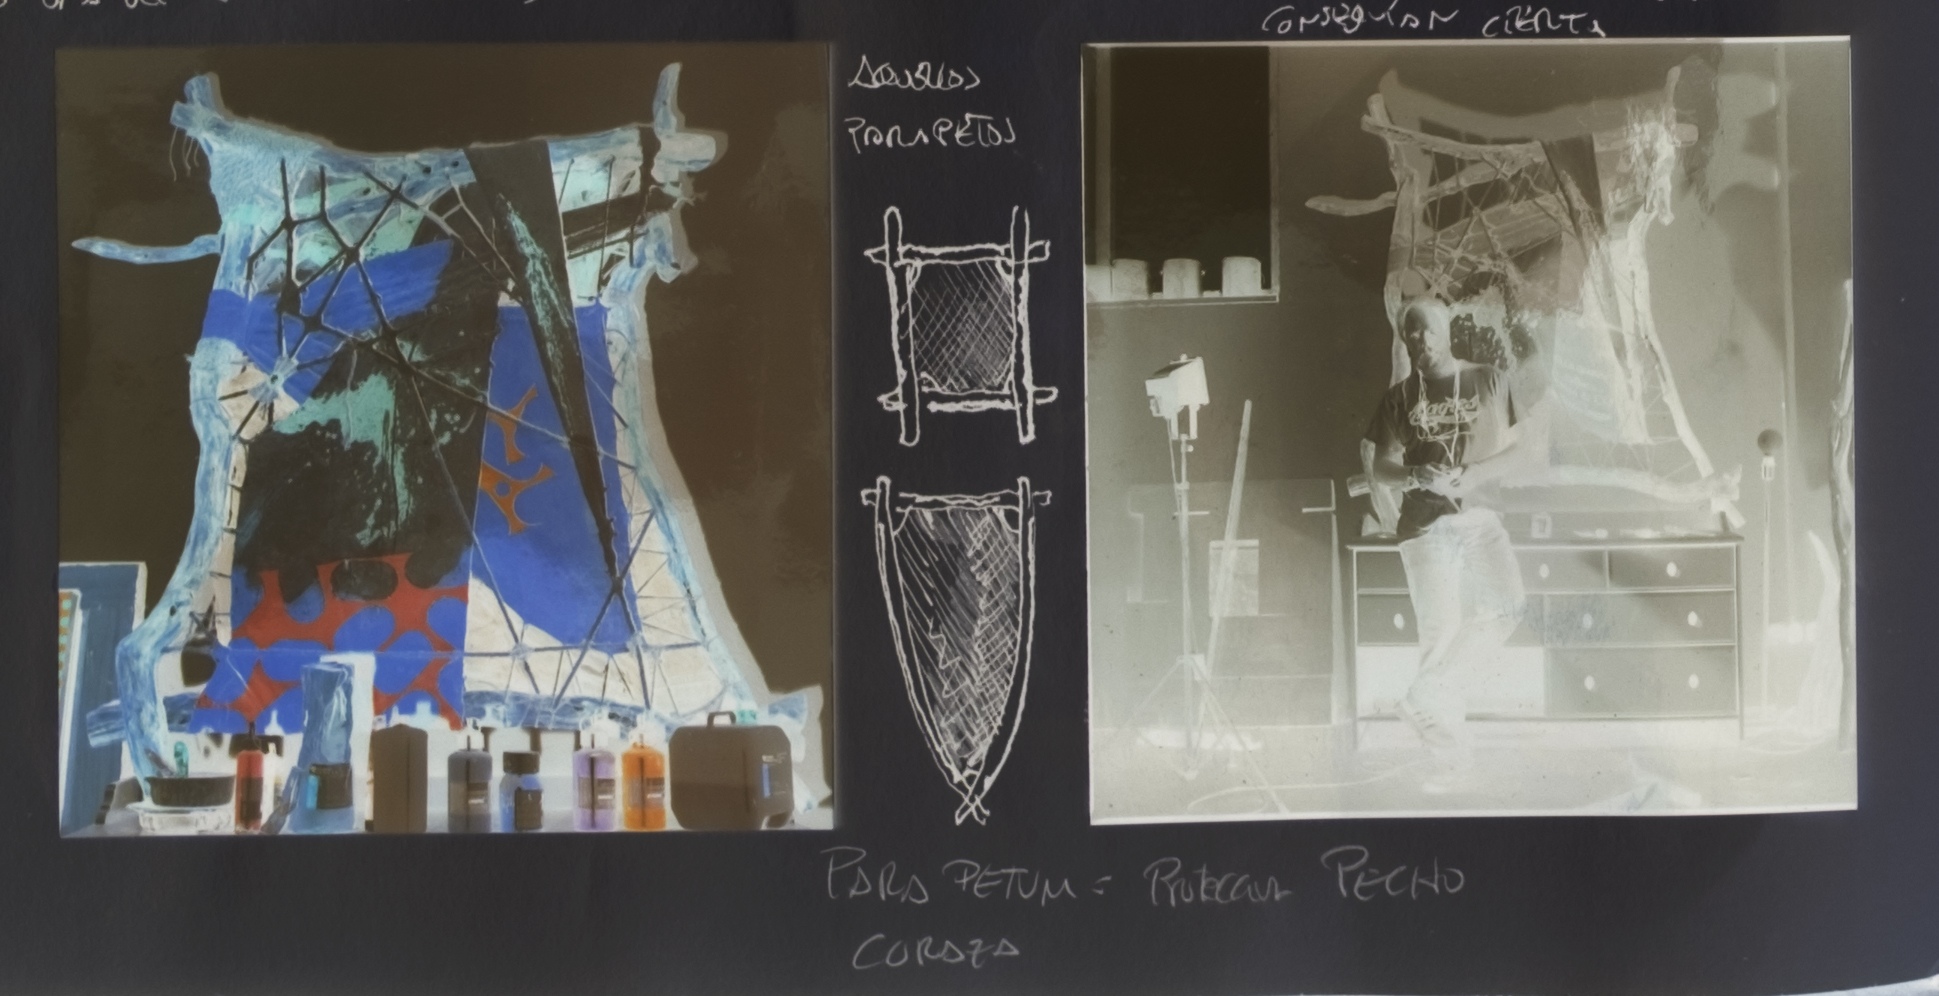 CONSEGUÍAN CIERTA
AQUELLOS
PARAPETOS
PARA PETUM = PROTECCIÓN PECHO
CORAZA